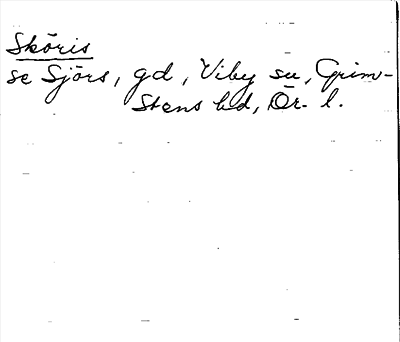 Sköris
se Sjörs, gd, Viby sn, Grim-
stens hd, Ör. l.